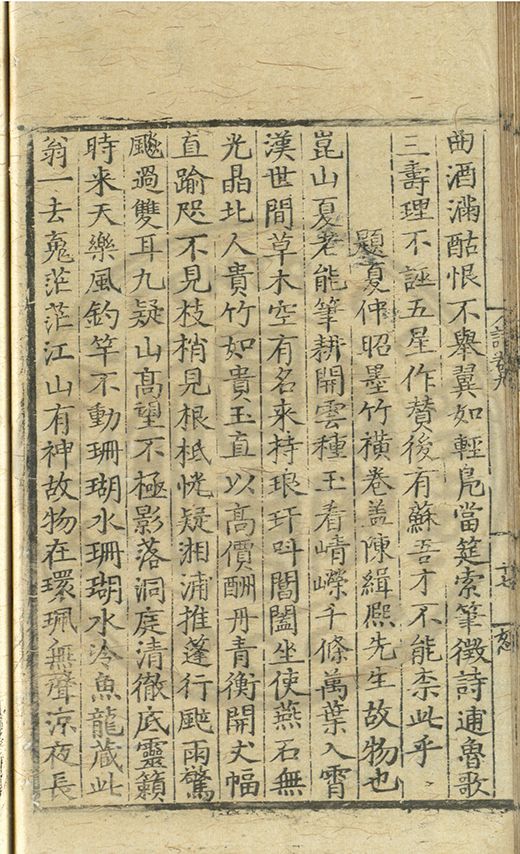 曲酒滿酤恨不舉翼如輕鳧當筵索筆徵詩逋魯歌
三壽理不誣五星作贊後有蘇吾才不能柰此乎
題夏仲昭墨竹橫卷蓋陳緝熈先生故物也
崑山夏老能筆耕開雲種玉看崝嶸千條萬葉入霄
漢世間草木空有名来持琅玕呌閶闔坐使燕石無
光晶北人貴竹如貴玉直以高價酬丹青衡開丈幅
直踰咫不見枝梢見根柢恍疑湘浦推蓬行颭雨驚
颷過雙耳九疑山髙望不極影落洞庭清徹底靈籟
時来天樂風釣竿不動珊瑚水珊瑚水冷魚龍藏此
翁一去䰟茫茫江山有神故物在環珮無聲涼夜長
十七